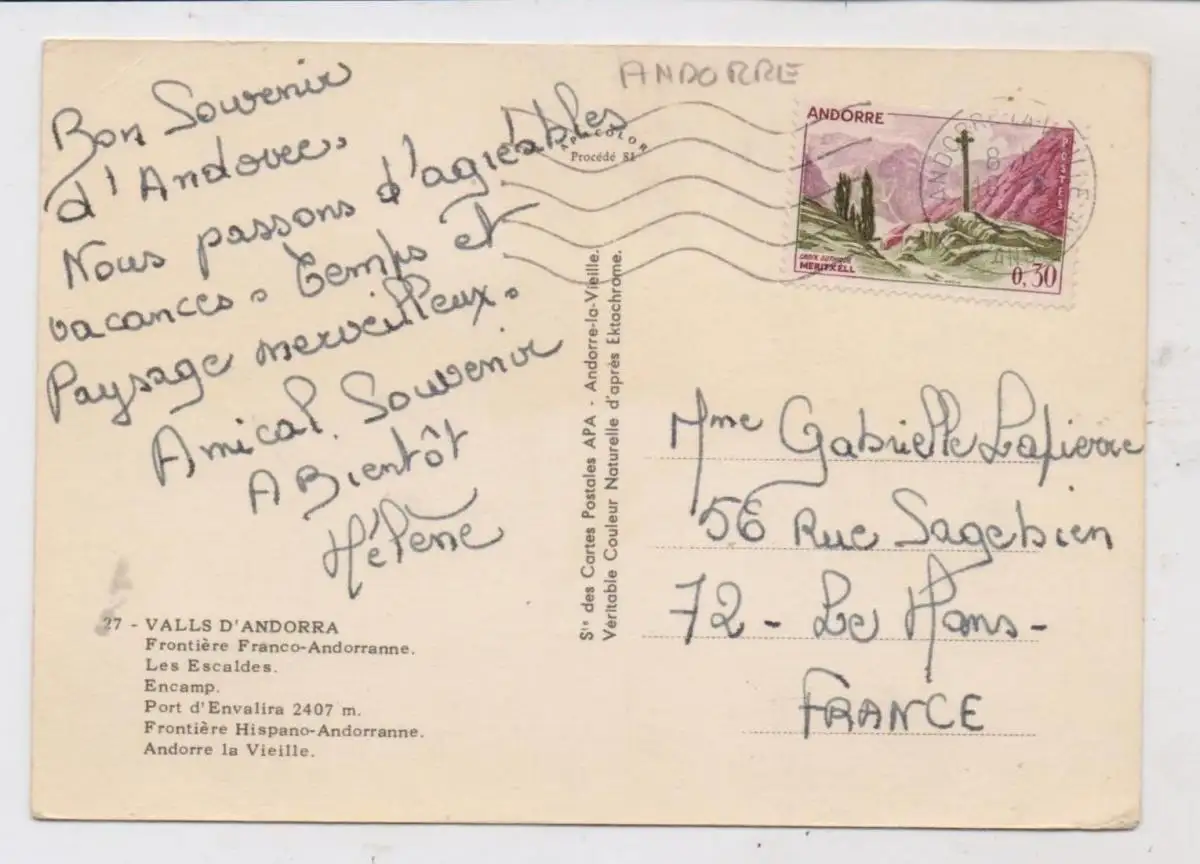 Bon Souvenir
d'Andorre.
Nous passons d'agréables
vacances. Temps et
Paysage merveilleux.
Amical Souvenir
A Bientôt
Hélène
27 - VALLS D'ANDORRA
Frontière Franco-Andorranne.
Les Escaldes.
Encamp.
Port d'Envalira 2407 m.
Frontière Hispano-Andorranne.
Andorre la Vieille.
APACOLOR
Procédé SI
Sté des Cartes Postales APA - Andorre-la-Vieille.
Véritable Couleur Naturelle d'après Ektachrome.
ANDORRE
ANDORRE
POSTES
CROIX GOTHIQUE
MERITXELL
0,30
ANDORRE-LA-VIEILLE
8
Mme Gabrielle Lapierre
56 Rue Sagebien
72 - Le Mans -
FRANCE